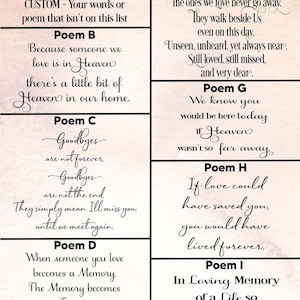 CUSTOM - Your words or
poem that isn't on this list
Poem B
Because someone we
love is in Heaven
there's a little bit of
Heaven in our home.
Poem C
Goodbyes
are not forever,
Goodbyes
are not the end.
They simply mean I'll miss you,
until we meet again.
Poem D
When someone you love
becomes a Memory,
The Memory becomes
The ones we love never go away.
They walk beside Us
even on this day.
Unseen, unheard, yet always near.
Still loved, still missed,
and very dear.
Poem G
We know you
would be here today
if Heaven
wasn't so far away.
Poem H
If love could
have saved you,
you would have
lived forever.
Poem I
In Loving Memory
of a Life so